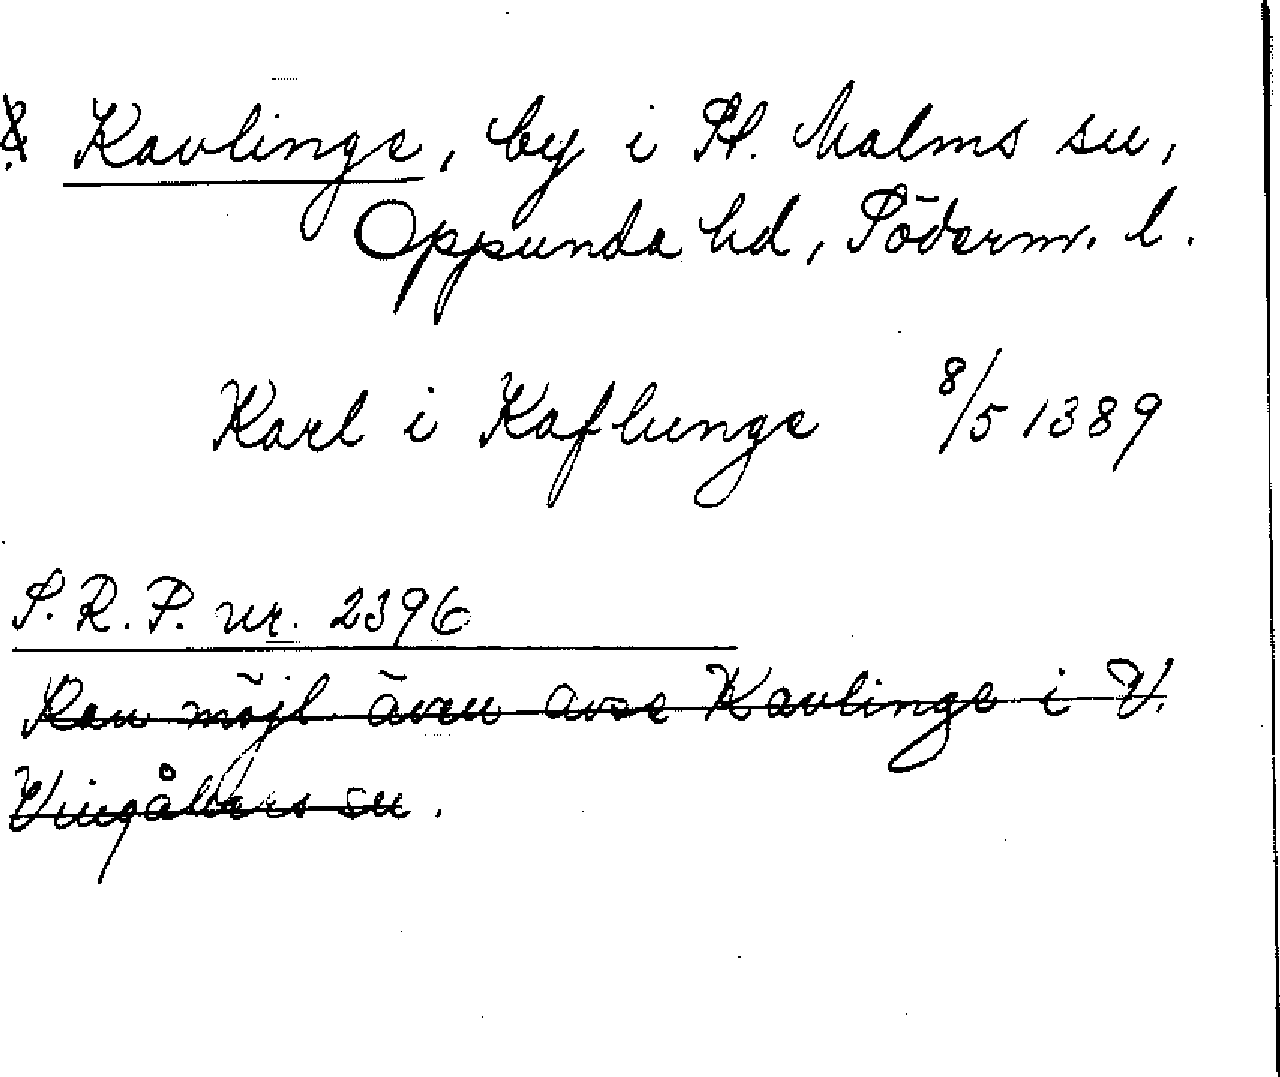 Kavlinge, by i St. Malms sn,
Oppunda hd, Söderm. l.
Karl i Kaflunge 8/5 1389
S.R.P. nr. 2396
Kan möjl. även avse Kavlinge i V.
Vingåkers sn.